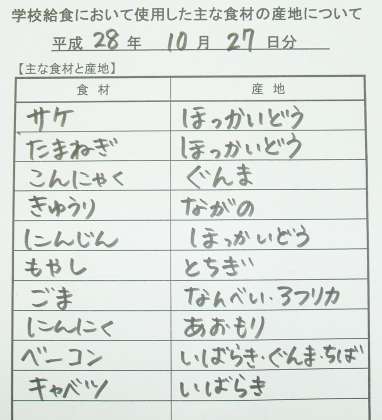 学校給食において使用した主な食材の産地について
平成 28 年 10 月 27 日分
【主な食材と産地】
食材 産地
サケ ほっかいどう
たまねぎ ほっかいどう
こんにゃく ぐんま
きゅうり ながの
にんじん ほっかいどう
もやし とちぎ
ごま なんべい・アフリカ
にんにく あおもり
ベーコン いばらき・ぐんま・ちば
キャベツ いばらき